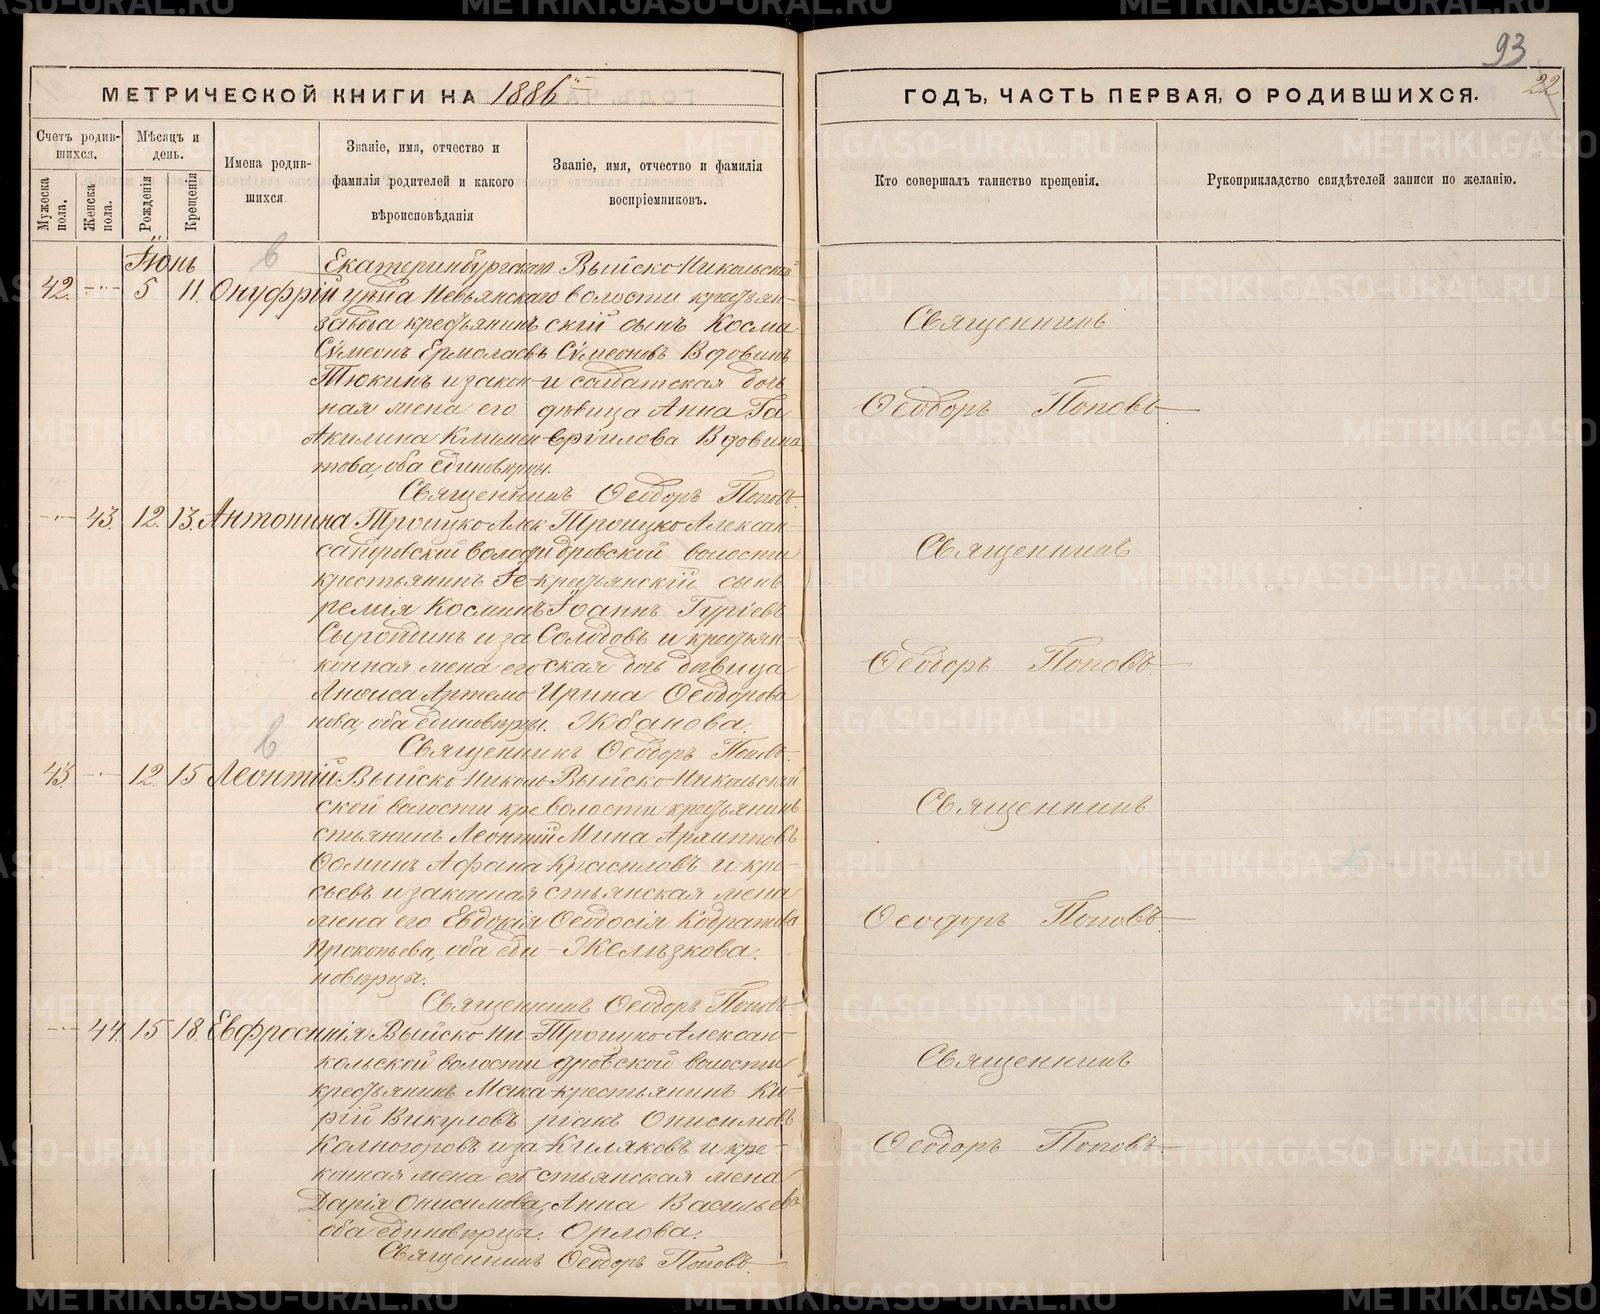 МЕТРИЧЕСКОЙ КНИГИ НА 1886й
Счетъ родившихся.
Мужеска пола.
Женска пола.
Мѣсяцъ и день.
Рожденія
Крещенія
Имена родившихся
Званіе, имя, отчество и фамилія родителей и какого вѣроисповѣданія
Званіе, имя, отчество и фамилія воспріемниковъ.
93
22
ГОДЪ, ЧАСТЬ ПЕРВАЯ, О РОДИВШИХСЯ.
Кто совершалъ таинство крещенія.
Рукоприкладство свидѣтелей записи по желанію.
Іюнь
42. 5 11. Онуфрій
Екатеринбургскаго
уѣзда Невьянскаго
завода крестьянинъ
Сѵмеонъ Ермолаевъ
Тюкинъ и закон-
ная жена его
Акилина Климен-
това, оба единоверцы.
Выйско-Никольской
волости крестьян-
скій сынъ Косма
Сѵмеоновъ Вдовинъ
и солдатская дочь
девица Анна Га-
вріилова Вдовина
Священникъ Ѳеодоръ Поповъ
Священникъ
Ѳеодоръ Поповъ
43. 12. 13. Антонина
Троицко Алек-
сандровской волости
крестьянинъ Іе-
ремія Косминъ
и за-
конная жена его
Анѳиса Артемо-
нова, оба единоверцы.
Троицко Алексан-
дровской волости
крестьянскій сынъ
Іоаннъ Гуріевъ
Солодовъ и крестьян-
ская дочь девица
Ирина Ѳеодорова
Жбанова.
Священникъ Ѳеодоръ Поповъ.
Священникъ
Ѳеодоръ Поповъ.
43. 12. 15 Леонтій
Выйско-Николь-
ской волости кре-
стьянинъ Леонтій
Ѳоминъ Афана-
сьевъ и законная
жена его Евдокія
Прокопьева, оба еди-
новерцы.
Выйско-Никольской
волости крестьянинъ
Мина Архиповъ
Красиловъ и кре-
стьянская жена
Ѳеодосія Кодратова
Желѣзкова.
Священникъ Ѳеодоръ Поповъ
Священникъ
Ѳеодоръ Поповъ.
44. 15 18. Евфросинія
Выйско Ни-
кольской волости
крестьянинъ Мака-
рій Викуловъ
Колногоровъ и за-
конная жена его
Дарія Онисимова,
оба единоверцы.
Троицко Алексан-
дровской волости
крестьянинъ Ки-
ріакъ Онисимовъ
Киляковъ и кре-
стьянская жена
Анна Васильева
Орлова.
Священникъ Ѳеодоръ Поповъ.
Священникъ
Ѳеодоръ Поповъ
METRIKI.GASO-URAL.RU